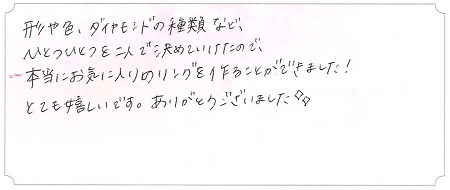 形や色、ダイヤモンドの種類など、
ひとつひとつを二人で決めていけたので、
本当にお気に入りのリングを作ることができました!
とても嬉しいです。ありがとうございました